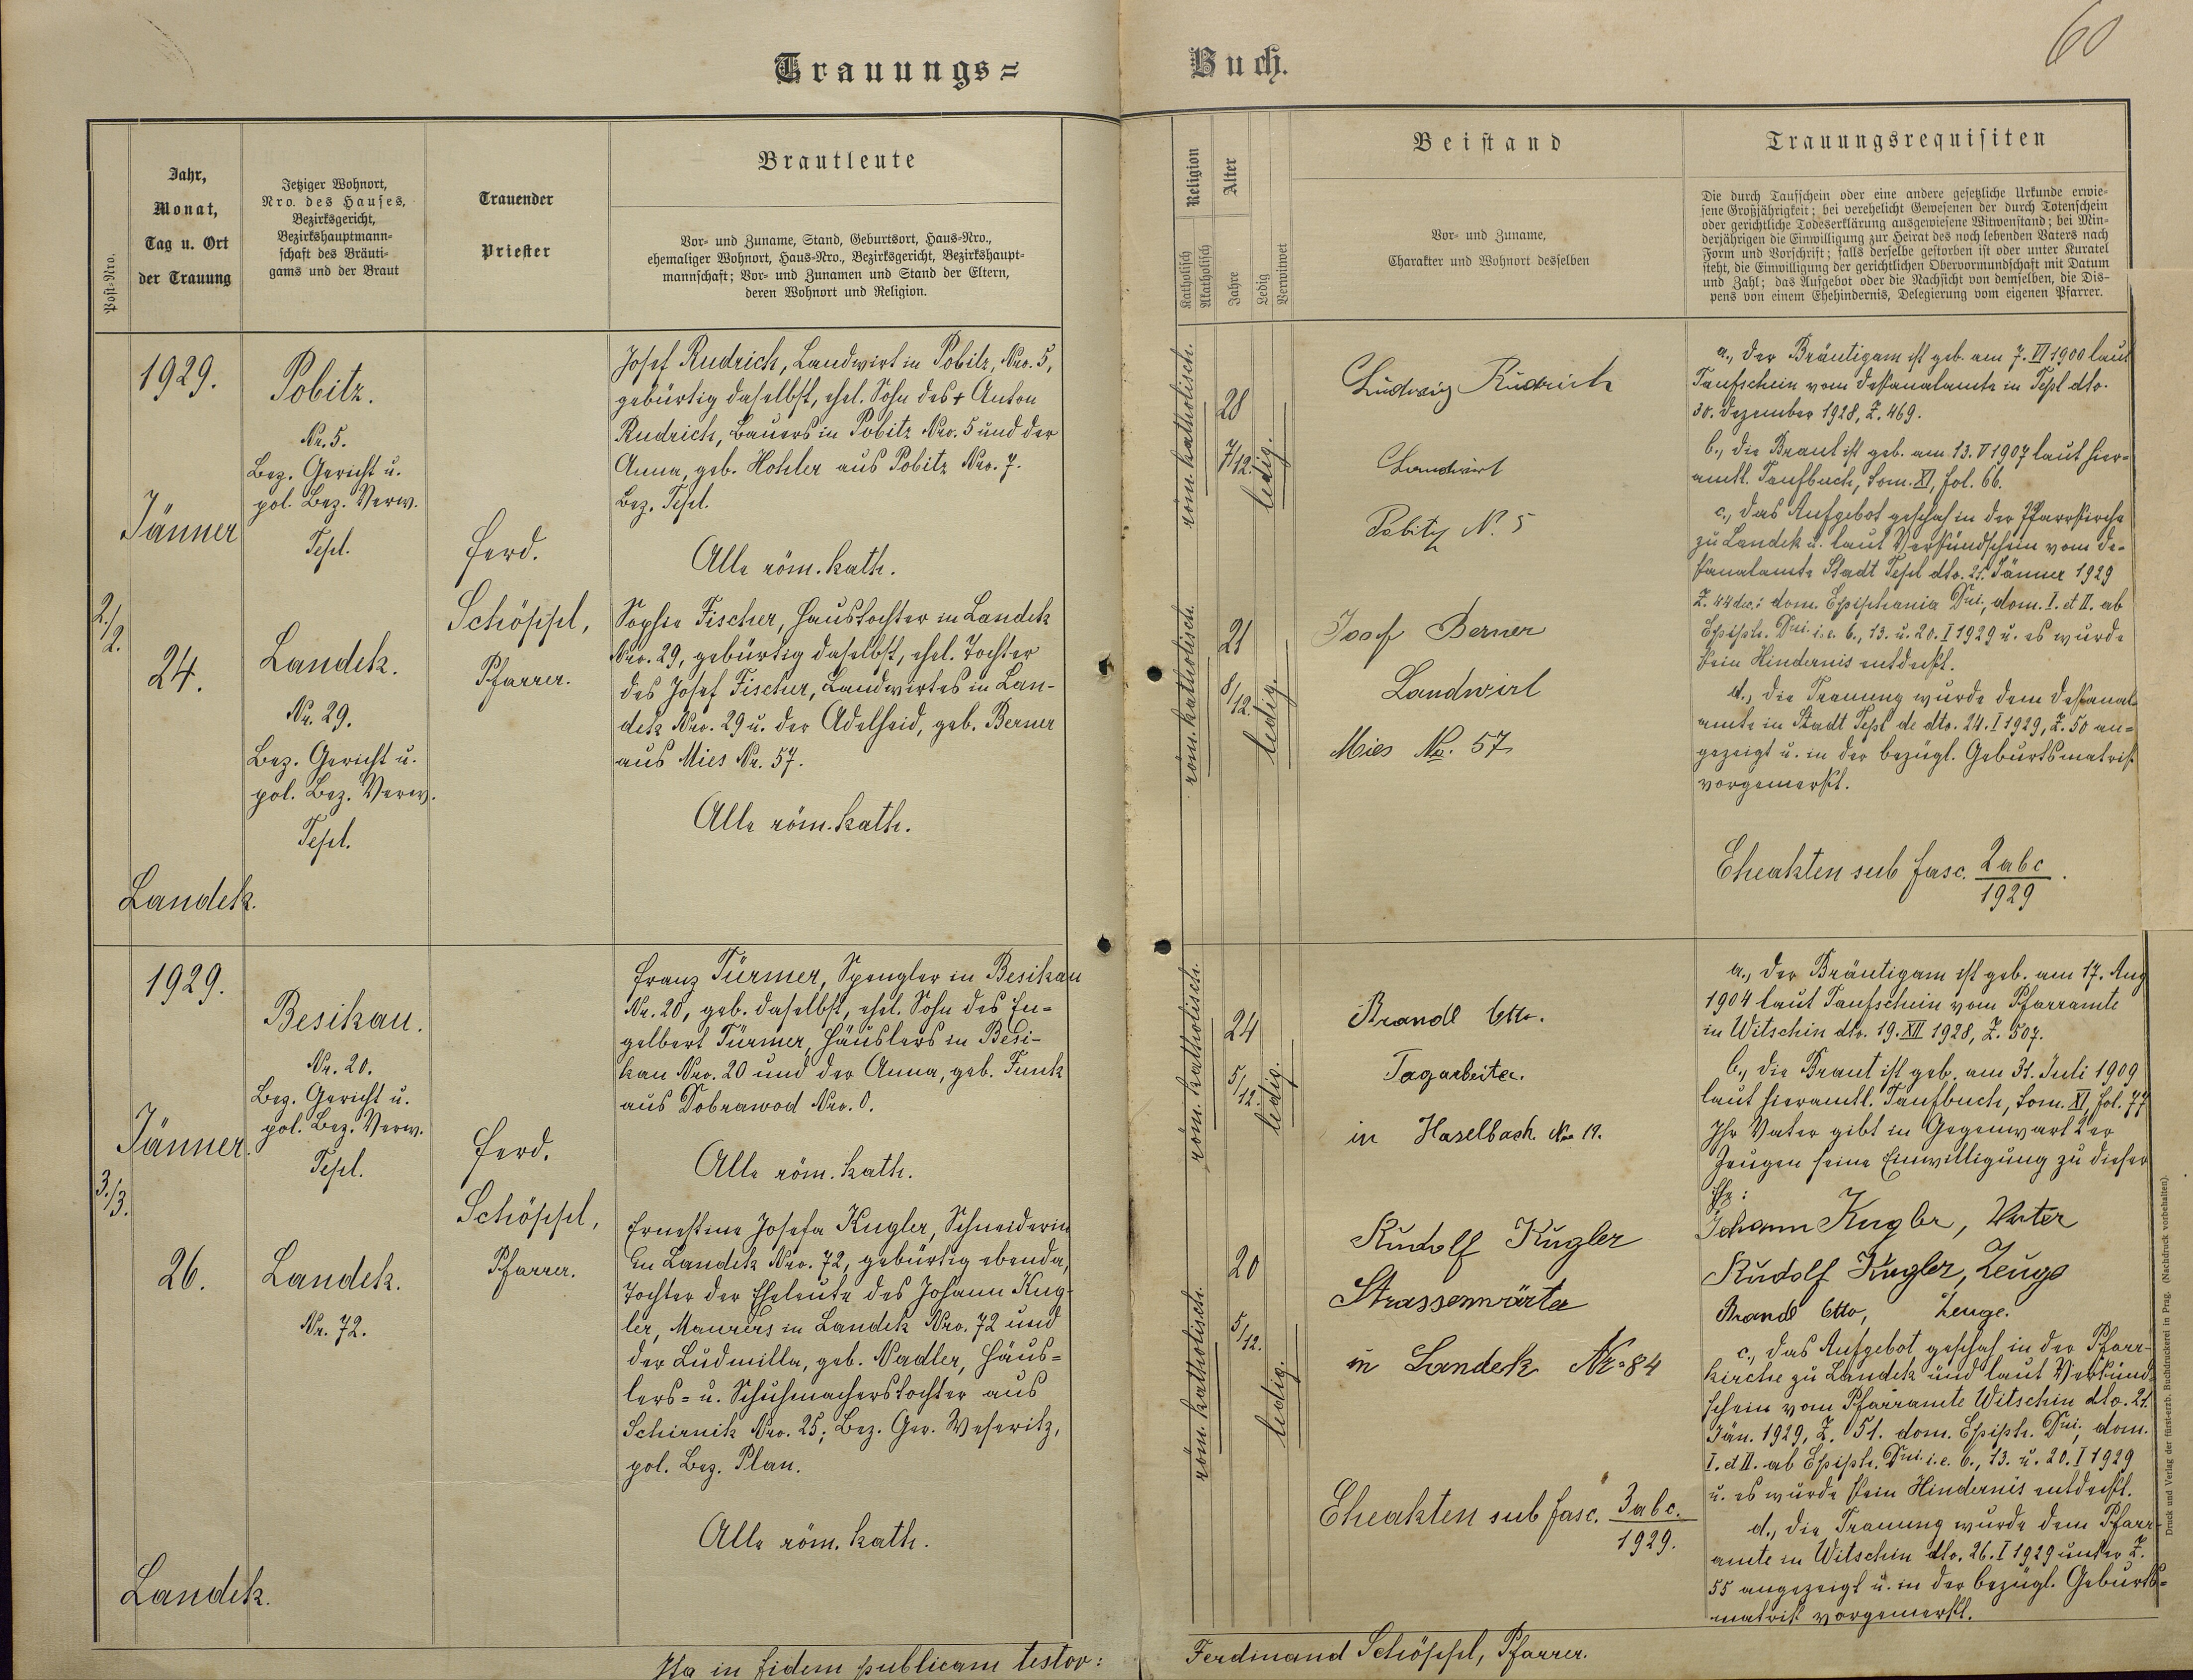 60
Trauungs=
Buch.
Post-Nro.
Jahr,
Monat,
Tag u. Ort
der Trauung
Jetziger Wohnort,
Nro. des Hauses,
Bezirksgericht,
Bezirkshauptmann-
schaft des Bräuti-
gams und der Braut
Trauender
Priester
Brautleute
Vor- und Zuname, Stand, Geburtsort, Haus-Nro.,
ehemaliger Wohnort, Haus-Nro., Bezirksgericht, Bezirkshaupt-
mannschaft; Vor- und Zunamen und Stand der Eltern,
deren Wohnort und Religion.
Religion
Katholisch
Akatholisch
Alter
Jahre
Ledig
Verwitwet
Beistand
Vor- und Zuname,
Charakter und Wohnort desselben
Trauungsrequisiten
Die durch Taufschein oder eine andere gesetzliche Urkunde erwie-
sene Großjährigkeit; bei verehelicht Gewesenen der durch Totenschein
oder gerichtliche Todeserklärung ausgewiesene Witwenstand; bei Min-
derjährigen die Einwilligung zur Heirat des noch lebenden Vaters nach
Form und Vorschrift; falls derselbe gestorben ist oder unter Kuratel
steht, die Einwilligung der gerichtlichen Obervormundschaft mit Datum
und Zahl; das Aufgebot oder die Nachsicht von demselben, die Dis-
pens von einem Ehehindernis, Delegierung vom eigenen Pfarrer.
2./2.
1929.
Jänner
24.
Landek.
Pobitz.
Nr. 5.
Bez. Gericht u.
pol. Bez. Verw.
Tepl.
Landek.
Nr. 29.
Bez. Gericht u.
pol. Bez. Verw.
Tepl.
Ferd.
Schöppl,
Pfarrer.
Josef Rudrich, Landwirt in Pobitz, Nro. 5,
gebürtig daselbst, ehel. Sohn des + Anton
Rudrich, Bauers in Pobitz Nro. 5 und der
Anna, geb. Hohler aus Pobitz Nro. 7.
Bez. Tepl.
Alle röm. kath.
Sophie Fischer, Haustochter in Landek
Nro. 29, gebürtig daselbst, ehel. Tochter
des Josef Fischer, Landwirtes in Lan-
dek Nro. 29 u. der Adelheid, geb. Berner
aus Mies Nr. 57.
Alle röm. kath.
röm. katholisch.
28
7/12.
ledig.
röm. katholisch.
21
8/12.
ledig.
Ludwig Rudrich
Landwirt
Pobitz N. 5
Josef Berner
Landwirt
Mies No. 57
a., der Bräutigam ist geb. am 7. VI 1900 laut
Taufschein vom Dekanalamte in Tepl dto.
30. Dezember 1928, Z. 469.
b., die Braut ist geb. am 13. V 1907 laut hier-
amtl. Taufbuch, tom. XI, fol. 66.
c., das Aufgebot geschah in der Pfarrkirche
zu Landek u. laut Verkündschein vom De-
kanalamte Stadt Tepl dto. 21. Jänner 1929
Z. 44 dec.: dom. Epiphania Dni, dom. I. et II. ab
Epiph. Dni i. e. 6., 13. u. 20. I 1929 u. es wurde
kein Hindernis entdeckt.
d., die Trauung wurde dem Dekanal-
amte in Stadt Tepl de dto. 24. I 1929, Z. 50 an-
gezeigt u. in der bezügl. Geburtsmatrik
vorgemerkt.
Eheakten sub fasc. 2abc/1929.
3./3.
1929.
Jänner.
26.
Landek.
Besikau.
Nr. 20.
Bez. Gericht u.
pol. Bez. Verw.
Tepl.
Landek.
Nr. 72.
Ferd.
Schöppl,
Pfarrer.
Franz Türmer, Spengler in Besikau
Nr. 20, geb. daselbst, ehel. Sohn des En-
gelbert Türmer, Häuslers in Besi-
kau Nro. 20 und der Anna, geb. Funk
aus Dobrawod Nro. 0.
Alle röm. kath.
Ernestine Josefa Kugler, Schneiderin
in Landek Nro. 72, gebürtig ebenda,
Tochter der Eheleute des Johann Kug-
ler, Maurers in Landek Nro. 72 und
der Ludmilla, geb. Nadler, Häus-
lers- u. Schuhmacherstochter aus
Schirnik Nro. 25; Bez. Ger. Weseritz,
pol. Bez. Plan.
Alle röm. kath.
röm. katholisch.
24
5/12.
ledig.
röm. katholisch.
20
5/12.
ledig.
Brandl Otto.
Tagarbeiter.
in Haselbach. Nro 19.
Rudolf Kugler
Strassenwärter
in Landek Nr. 84
Eheakten sub fasc. 3abc./1929.
a., der Bräutigam ist geb. am 17. Aug
1904 laut Taufschein vom Pfarramte
in Witschin dto. 19. XII 1928, Z. 507.
b., die Braut ist geb. am 31. Juli 1909
laut hieramtl. Taufbuch, tom. XI, fol. 77
Ihr Vater gibt in Gegenwart 2er
Zeugen seine Einwilligung zu dieser
Ehe:
Johann Kugler, Vater
Rudolf Kugler, Zeuge
Brandl Otto, Zeuge.
c., das Aufgebot geschah in der Pfarr-
kirche zu Landek und laut Verkünd-
schein vom Pfarramte Witschin dto. 21.
Jän. 1929, Z. 51. dom. Epiph. Dni, dom.
I. et II. ab Epiph. Dni i. e. 6., 13. u. 20. I 1929
u. es wurde kein Hindernis entdeckt.
d., die Trauung wurde dem Pfarr-
amte in Witschin dto. 26. I 1929 unter Z.
55 angezeigt u. in der bezügl. Geburts-
matrik vorgemerkt.
Ita in fidem publicam testor:
Ferdinand Schöppl, Pfarrer.
Druck und Verlag der fürst-erzb. Buchdruckerei in Prag. (Nachdruck vorbehalten).